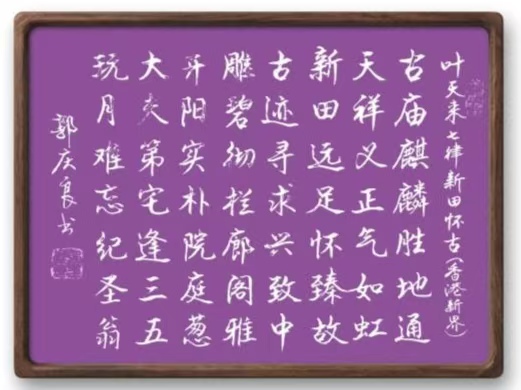 叶天来七律新田怀古(香港新界)
古庙麒麟胜地通
天祥义正气如虹
新田远足怀臻故
古迹寻求兴致中
雕碧栏廊阁雅
阳实朴院庭葱
大夫第宅逢三五
玩月难忘纪圣翁
郭庆良书